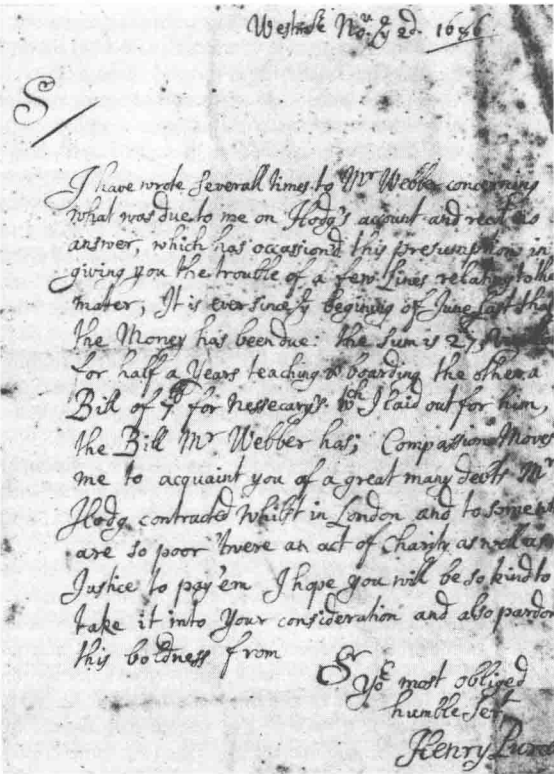 Westmr Nou. ye 2d. 1686
Sr
I have wrote severall times to Mr Webber concerning
what was due to me on Hodg's account and recd no
answer, which has occasion'd this presumption in
giving you the trouble of a few lines relating to the
mater, It is ever since ye begining of June last that
the Money has been due: the sum is 27,
for half a years teaching & boarding the other a
Bill of 7lb for nessecary's wch I laid out for him,
the Bill Mr Webber has; Compassion Moves
me to acquaint you of a great many debts Mr
Hodg contracted whilst in London and to some who
are so poor 'twere an act of Charity as well as
Justice to pay 'em I hope you will be so kind to
take it into Your consideration and also pardon
this boldness from
Sr
Yor most obliged
humble sert
Henry Purc